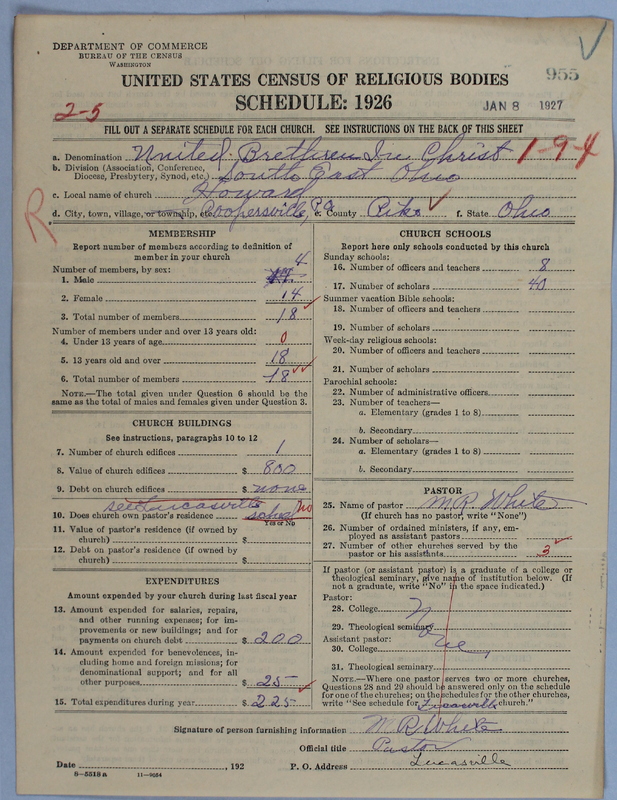 DEPARTMENT OF COMMERCE
BUREAU OF THE CENSUS
WASHINGTON
955
UNITED STATES CENSUS OF RELIGIOUS BODIES
2-5
SCHEDULE: 1926
JAN 8 1927
FILL OUT A SEPARATE SCHEDULE FOR EACH CHURCH. SEE INSTRUCTIONS ON THE BACK OF THIS SHEET
a. Denomination United Brethren In Christ 1-9-4
b. Division (Association, Conference,
Diocese, Presbytery, Synod, etc.) South East Ohio
c. Local name of church Howard
d. City, town, village, or township, etc. Coopersville, e. County Pike f. State Ohio
R
MEMBERSHIP
Report number of members according to definition of
member in your church
Number of members, by sex: 4
1. Male
2. Female 14
3. Total number of members 18
Number of members under and over 13 years old:
4. Under 13 years of age 0
5. 13 years old and over 18
6. Total number of members 18
NOTE.—The total given under Question 6 should be
same as the total of males and females given under Question 3.
CHURCH BUILDINGS
See instructions, paragraphs 10 to 12
7. Number of church edifices 1
8. Value of church edifices $ 800
9. Debt on church edifices $ none
see Lucasville
10. Does church own pastor's residence? school no
Yes or No
11. Value of pastor's residence (if owned by
church) $
12. Debt on pastor's residence (if owned by
church) $
EXPENDITURES
Amount expended by your church during last fiscal year
13. Amount expended for salaries, repairs,
and other running expenses; for im-
provements or new buildings; and for
payments on church debt $ 200
14. Amount expended for benevolences, in-
cluding home and foreign missions; for
denominational support; and for all
other purposes $ 25
15. Total expenditures during year $ 225
CHURCH SCHOOLS
Report here only schools conducted by this church
Sunday schools:
16. Number of officers and teachers 8
17. Number of scholars 40
Summer vacation Bible schools:
18. Number of officers and teachers
19. Number of scholars
Week-day religious schools:
20. Number of officers and teachers
21. Number of scholars
Parochial schools:
22. Number of administrative officers
23. Number of teachers—
a. Elementary (grades 1 to 8)
b. Secondary
24. Number of scholars—
a. Elementary (grades 1 to 8)
b. Secondary
PASTOR
25. Name of pastor M R White
(If church has no pastor, write "None")
26. Number of ordained ministers, if any, em-
ployed as assistant pastors
27. Number of other churches served by the
pastor or his assistants 3
If pastor (or assistant pastor) is a graduate of a college or
theological seminary, give name of institution below. (If
not a graduate, write "No" in the space indicated.)
Pastor:
28. College
29. Theological seminary
None
Assistant pastor:
30. College
31. Theological seminary
NOTE.—Where one pastor serves two or more churches,
Questions 28 and 29 should be answered only on the schedule
for one of the churches; on the schedule for the other churches,
write "See schedule for Lucasville church."
Signature of person furnishing information M R White
Official title Pastor
Date , 192 P. O. Address Lucasville
8-5518 a 11-9054